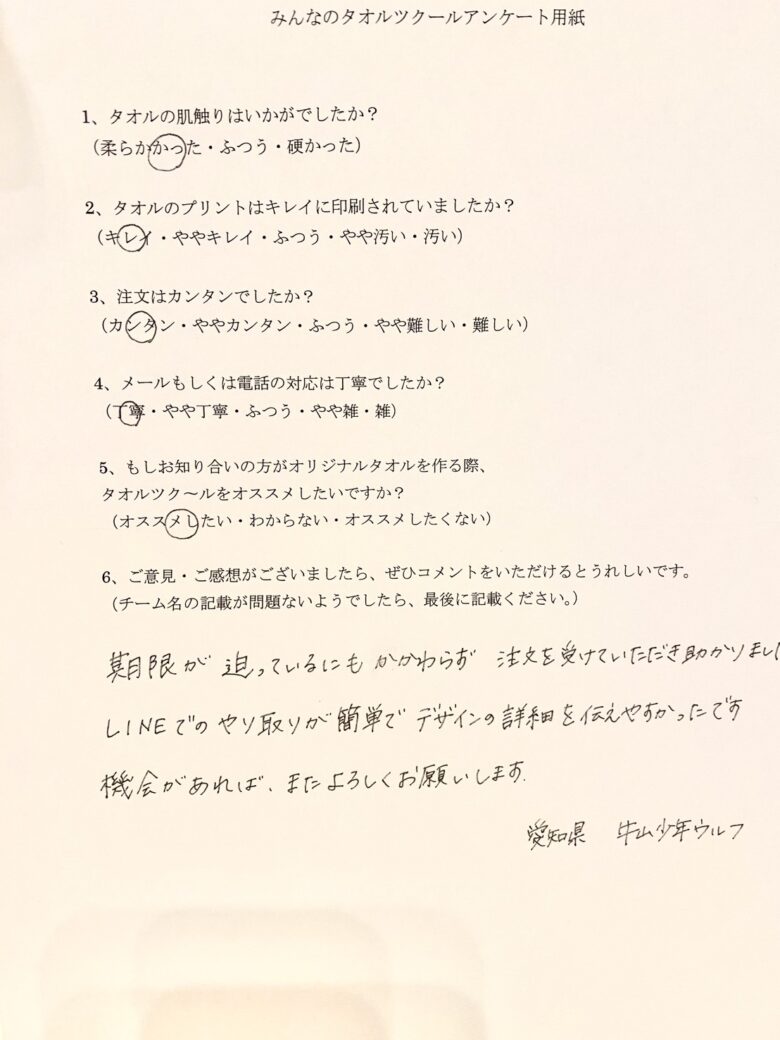 みんなのタオルツクールアンケート用紙
1、タオルの肌触りはいかがでしたか？
（柔らかかった・ふつう・硬かった）
2、タオルのプリントはキレイに印刷されていましたか？
（キレイ・ややキレイ・ふつう・やや汚い・汚い）
3、注文はカンタンでしたか？
（カンタン・ややカンタン・ふつう・やや難しい・難しい）
4、メールもしくは電話の対応は丁寧でしたか？
（丁寧・やや丁寧・ふつう・やや雑・雑）
5、もしお知り合いの方がオリジナルタオルを作る際、
タオルツク～ルをオススメしたいですか？
（オススメしたい・わからない・オススメしたくない）
6、ご意見・ご感想がございましたら、ぜひコメントをいただけるとうれしいです。
（チーム名の記載が問題ないようでしたら、最後に記載ください。）
期限が 迫っているにも かかわらず 注文を受けていただき助かりまし
LINEでの やり取りが 簡単で デザインの詳細を伝えやすかったです
機会があれば、またよろしくお願いします.
愛知県 牛山少年ウルフ